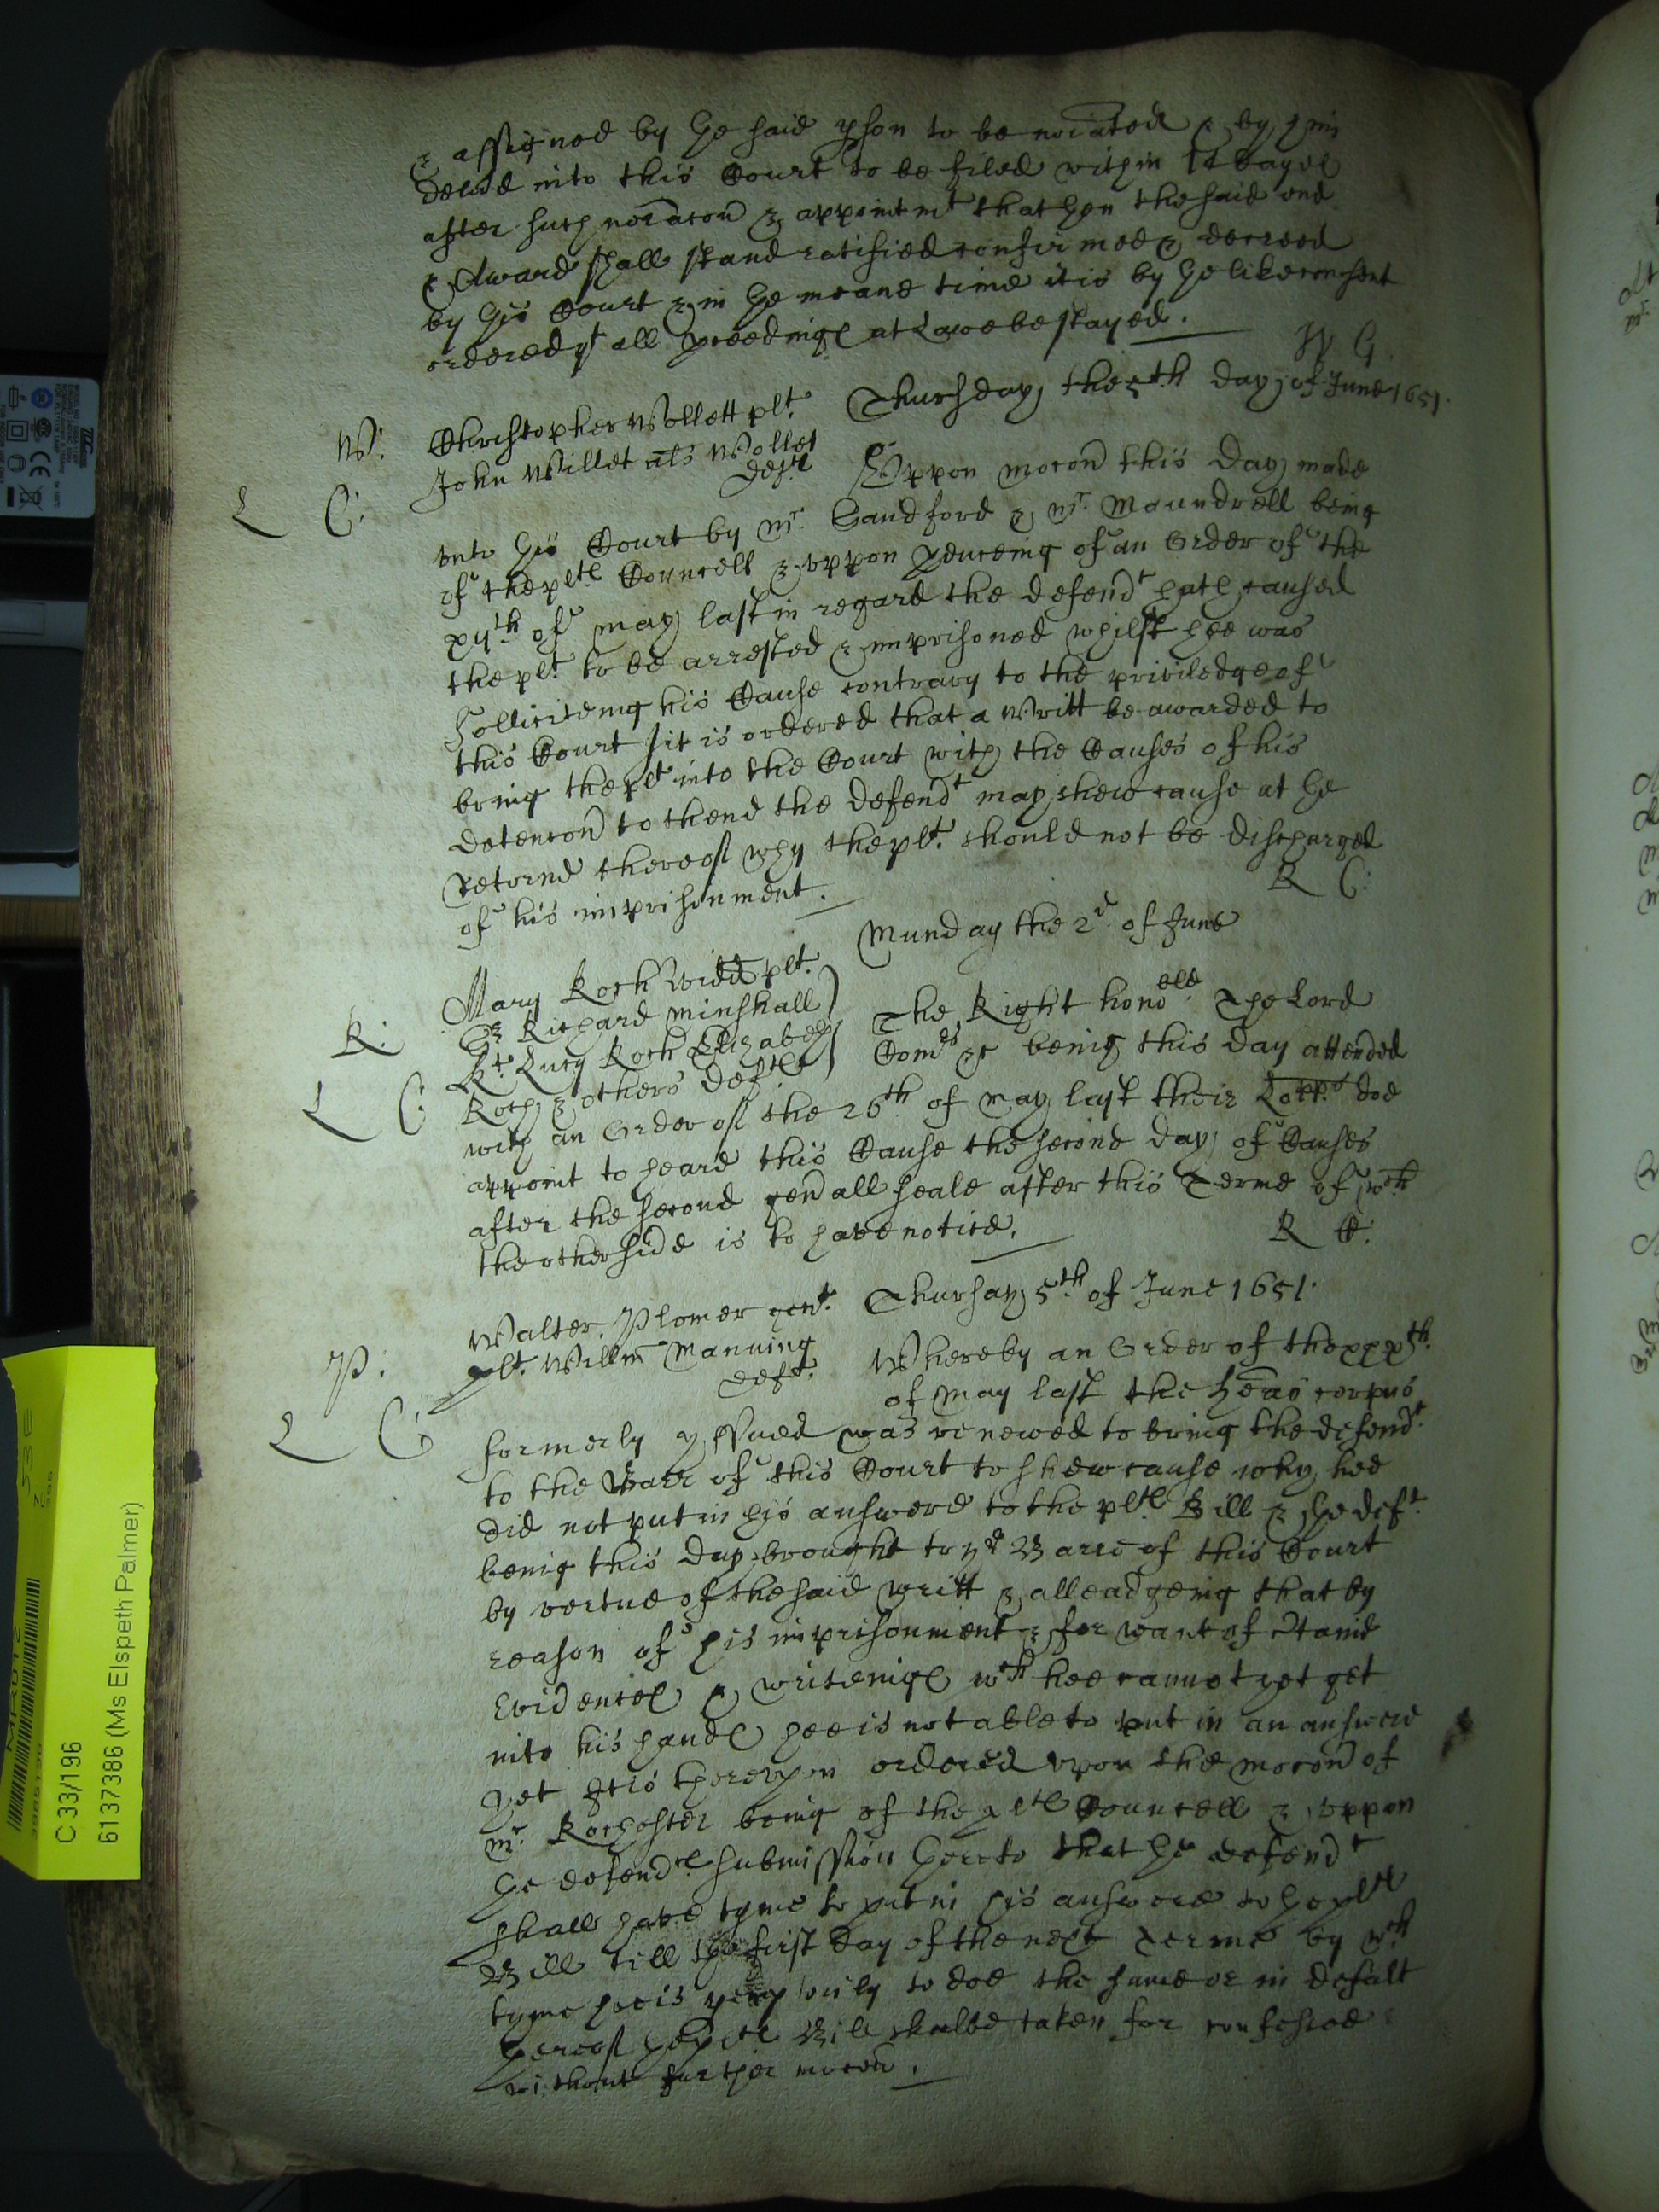 & assigned by the said pson to be noiated & by him
delivd into this Court to be filed within 14 dayes
after such noiacon & appointmt that then the said end
& Award shall stand ratified confirmed & decreed
by this Court & in the meane time it is by the like consent
ordered yt all proceedings at Lawe be stayed.
W G.
W: Christopher Wollett plt. Thursday the 5th day of June 1651.
John Willet als Wollet
deft
L C: Uppon mocon this day made
unto this Court by Mr. Sandford & Mr. Maundrell being
of the plts Councell & uppon pduceing of an Order of the
of May last in regard the defendt hath caused
the plt. to be arrested & imprisoned whilst hee was
solliciteing his Cause contrary to the priviledge of
this Court it is ordered that a Writt be awarded to
bring the plt into the Court with the Causes of his
detencon to thend the defendt may shew cause at the
retorne thereof why the plt. should not be discharged
of his imprisonment.
R C:
Munday the 2d of June
Mary Roch Widd plt.
R: Sr Richard Minshall
Kt. Lucy Roch Elizabeth
Roch & others defts
The Right honoble The Lord
Comrs &c being this day attended
L C: with an Order of the 26th of May last their Lopps doe
appoint to heare this Cause the second day of Causes
after the second genall seale after this Terme of wch
the other side is to have notice.
R C:
Walter Plomer gent. Thursay 5th of June 1651.
P: plt. Willm Manning
deft.
Whereby an Order of the xxxth.
of May last the heas corpus
L C: formerly yssued was renewed to bring the defendt.
to the Barr of this Court to shew cause why hee
did not put in his answere to the plts Bill & the deft.
being this day brought to ye Barre of this Court
by vertue of the said writt & alleadgeing that by
reason of his imprisonment & for want of
Evidences & writeings wch hee cannot yet get
into his hands hee is not able to put in an answere
yet It is thereupon ordered upon the mocon of
Mr. Rochester being of the plts Councell & uppon
the defendts submission hereto that the defendt
shall have tyme to put in his answere to the plts
Bill till the first day of the next Terme by wch
tyme hee is pemptorily to doe the same or in defalt
thereof the plts Bill shalbe taken for confessed
without further mocon.
C 33/196
6137386 (Ms Elspeth Palmer)